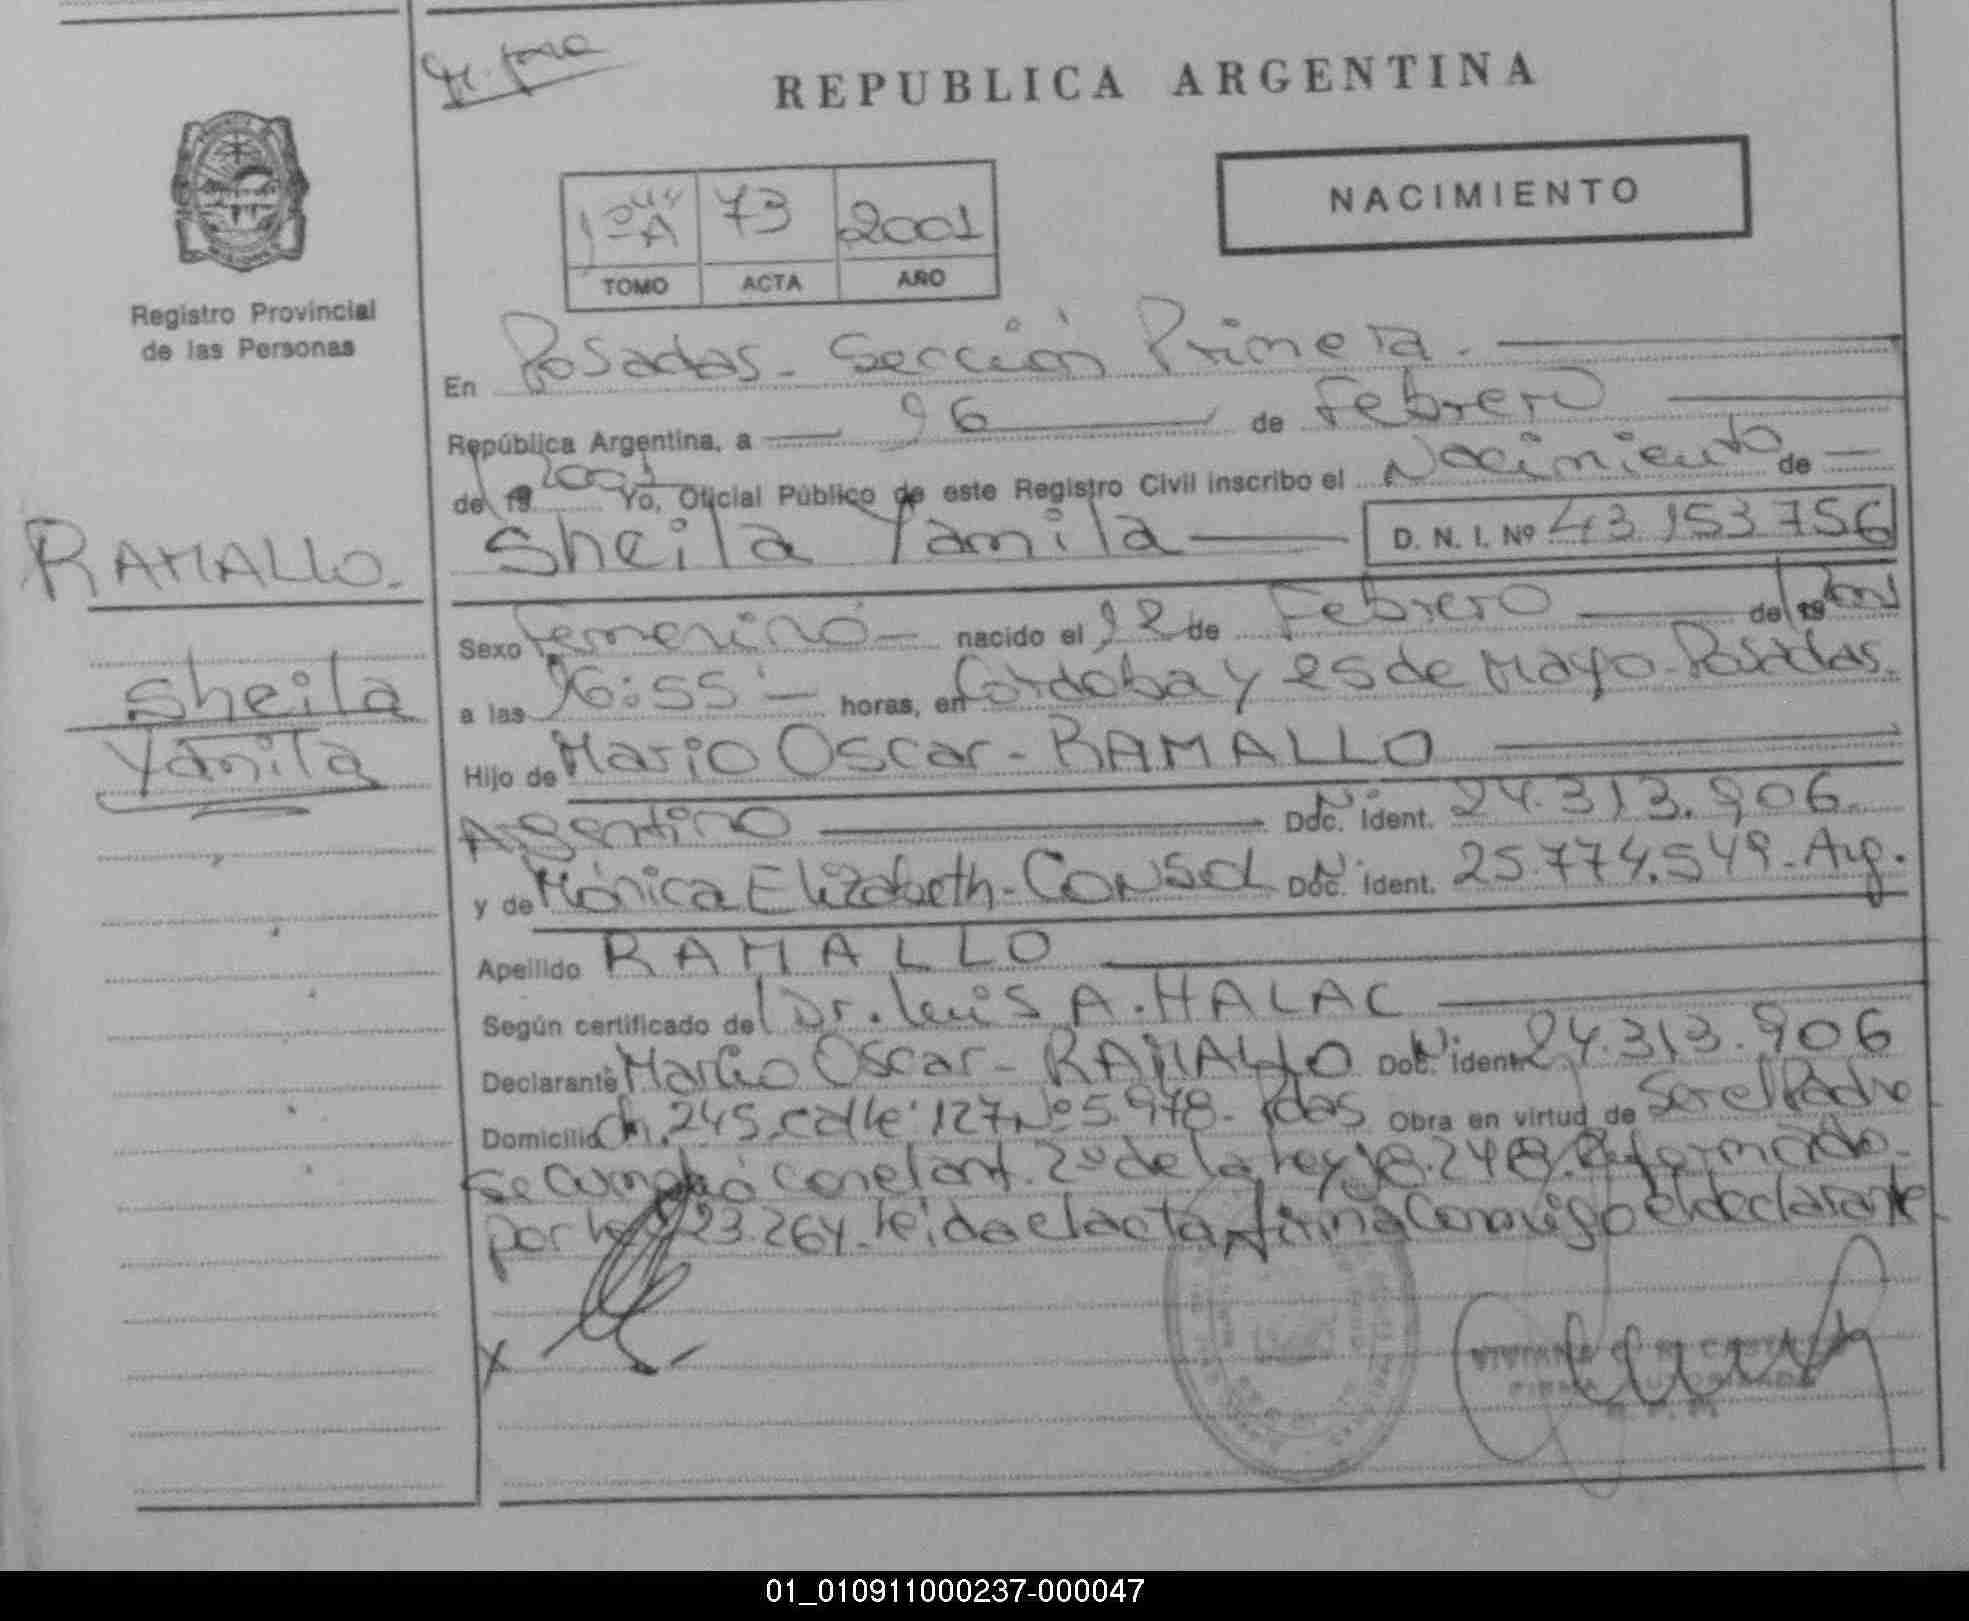 REPUBLICA ARGENTINA
NACIMIENTO
73 2001
TOMO ACTA AÑO
Registro Provincial
de las Personas
En Posadas - Sección Primera.
República Argentina, a 26 de Febrero
de 19 2001 Yo, Oficial Público de este Registro Civil inscribo el Nacimiento de
Sheila Yamila D. N. I. Nº 43.153.756
RAMALLO.
Sheila
Yamila
Sexo Femenino nacido el 22 de Febrero de 19 2001
a las 16:55 horas, en Córdoba y 25 de Mayo - Posadas.
Hijo de Mario Oscar - RAMALLO
Argentino Doc. Ident. 24.313.906
y de Mónica Elizabeth - Doc. Ident. 25.774.549 - Arg.
Apellido RAMALLO
Según certificado del Dr. Luis A. HALAC
Declarante Mario Oscar - RAMALLO Doc. Ident. 24.313.906
Domicilio Ch. 245 - calle 127 Nº 5.978 - Pdas Obra en virtud de Ser el Padre
Se cumplió con el art. 2º de la Ley 18.248. Reformado
por ley 23.264. Leída el acta, firma Conmigo el declarante
X
FIRMA AUTORIZADA
01_010911000237-000047